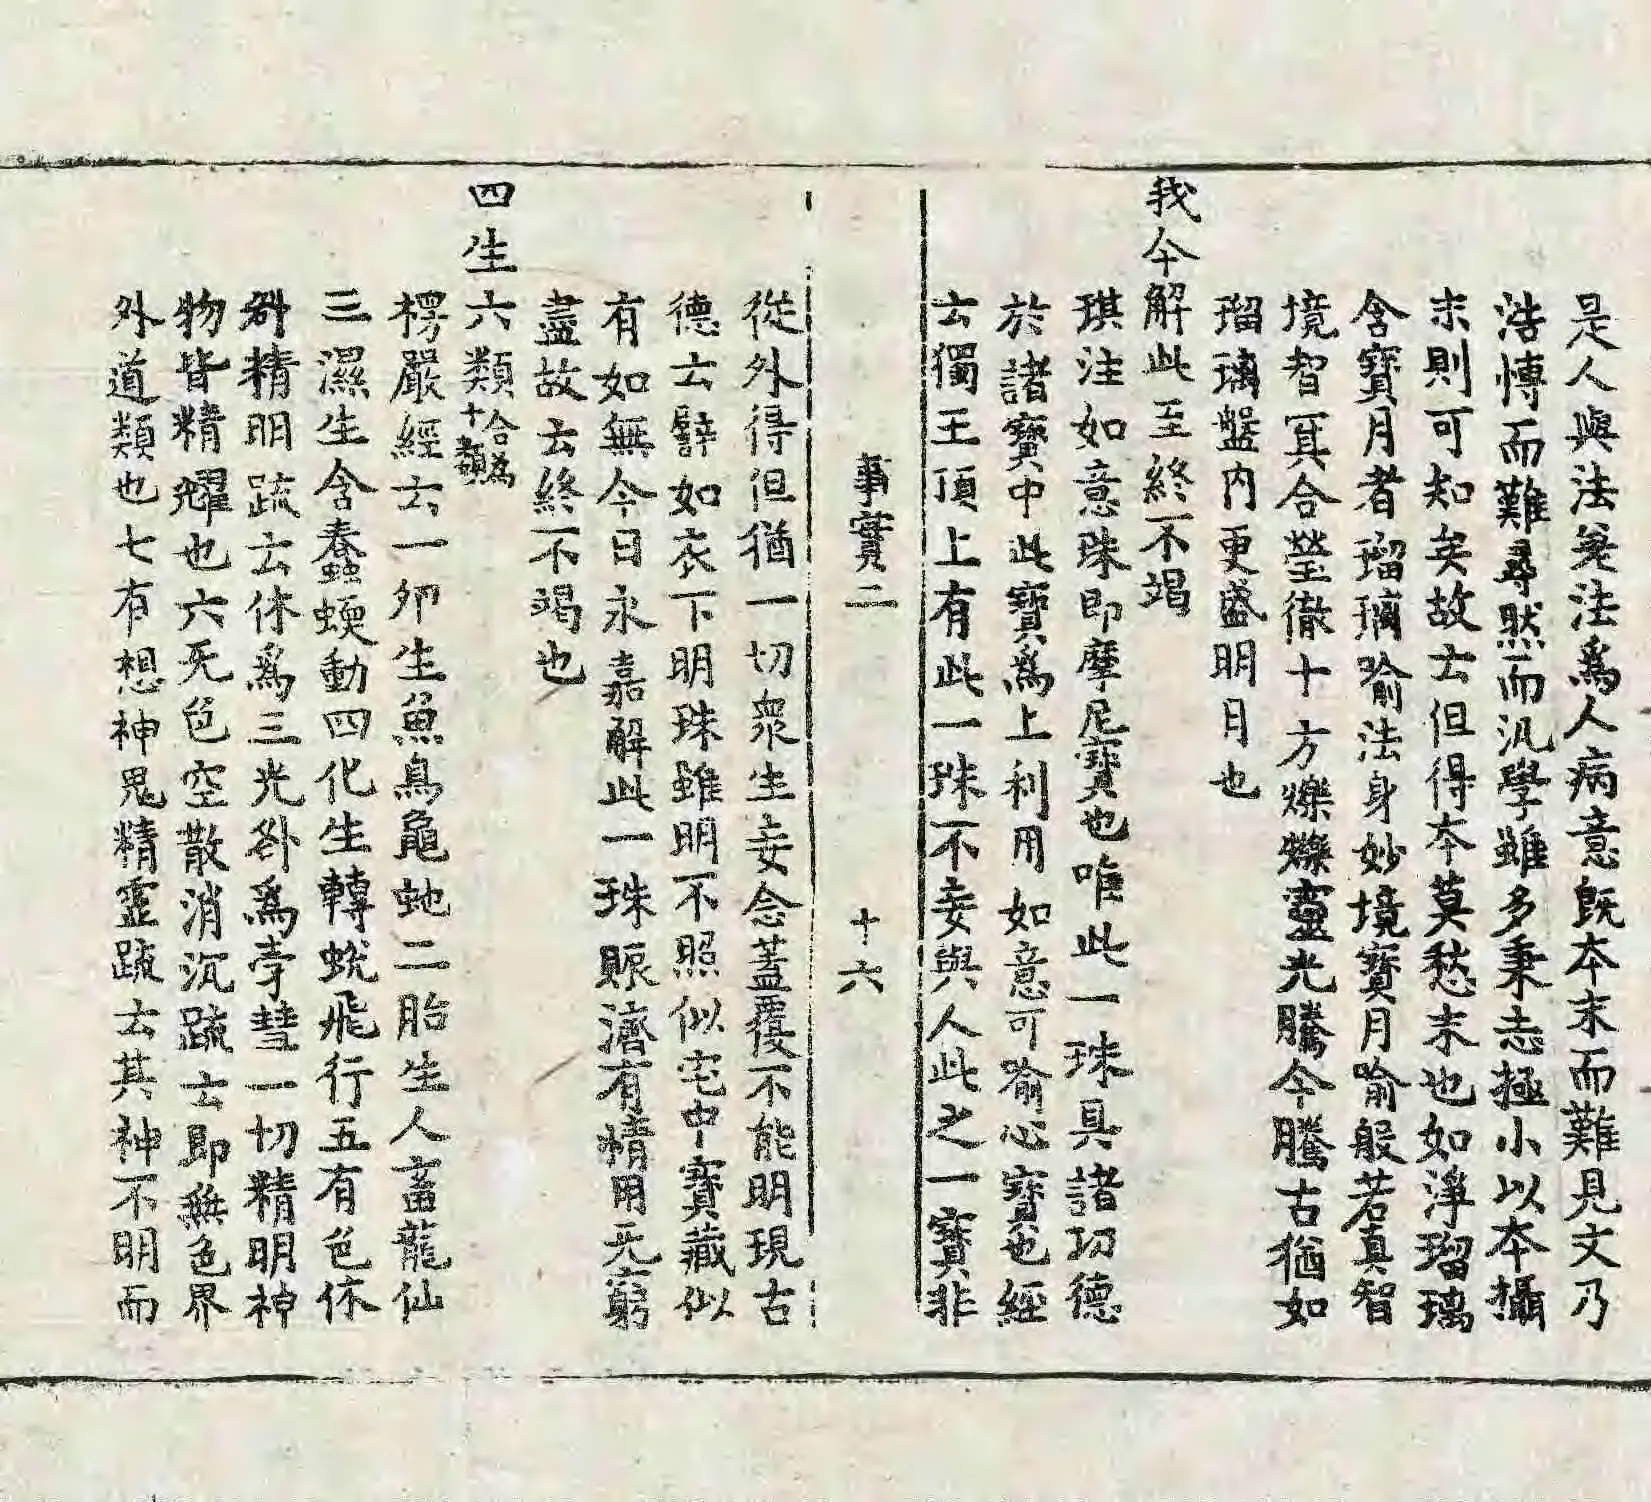 是人與法無法爲人病意旣本末而難見文乃
浩愽而難尋然而汎學雖多秉志極小以本攝
末則可知矣故云但得本莫愁末也如淨瑠璃
含寶月者瑠璃喻法身妙境寶月喻般若真智
境智冥合瑩徹十方爍爍靈光騰今騰古猶如
瑠璃盤内更盛明月也
我今解此至終不竭
琪注如意珠即摩尼寶也唯此一珠具諸功德
於諸寶中此寶爲上利用如意可喻心寶也經
云獨王頂上有此一珠不妄與人此之一寶非
事實二 十六
從外得但猶一切衆生妄念蓋覆不能明現古
德云譬如衣下明珠雖明不照似宅中寶藏似
有如無今日永嘉解此一珠賑濟有情用无窮
盡故去終不竭也
四生六類合爲十類
楞嚴經云一夘生魚鳥龜虵二胎生人畜龍仙
三濕生含蠢蝡動四化生轉蛻飛行五有色休
咎精明䟽云休爲三光咎爲孛彗一切精明神
物皆精耀也六无色空散消沉䟽士即無色界
外道類也七有想神鬼精靈䟽云其神不明而